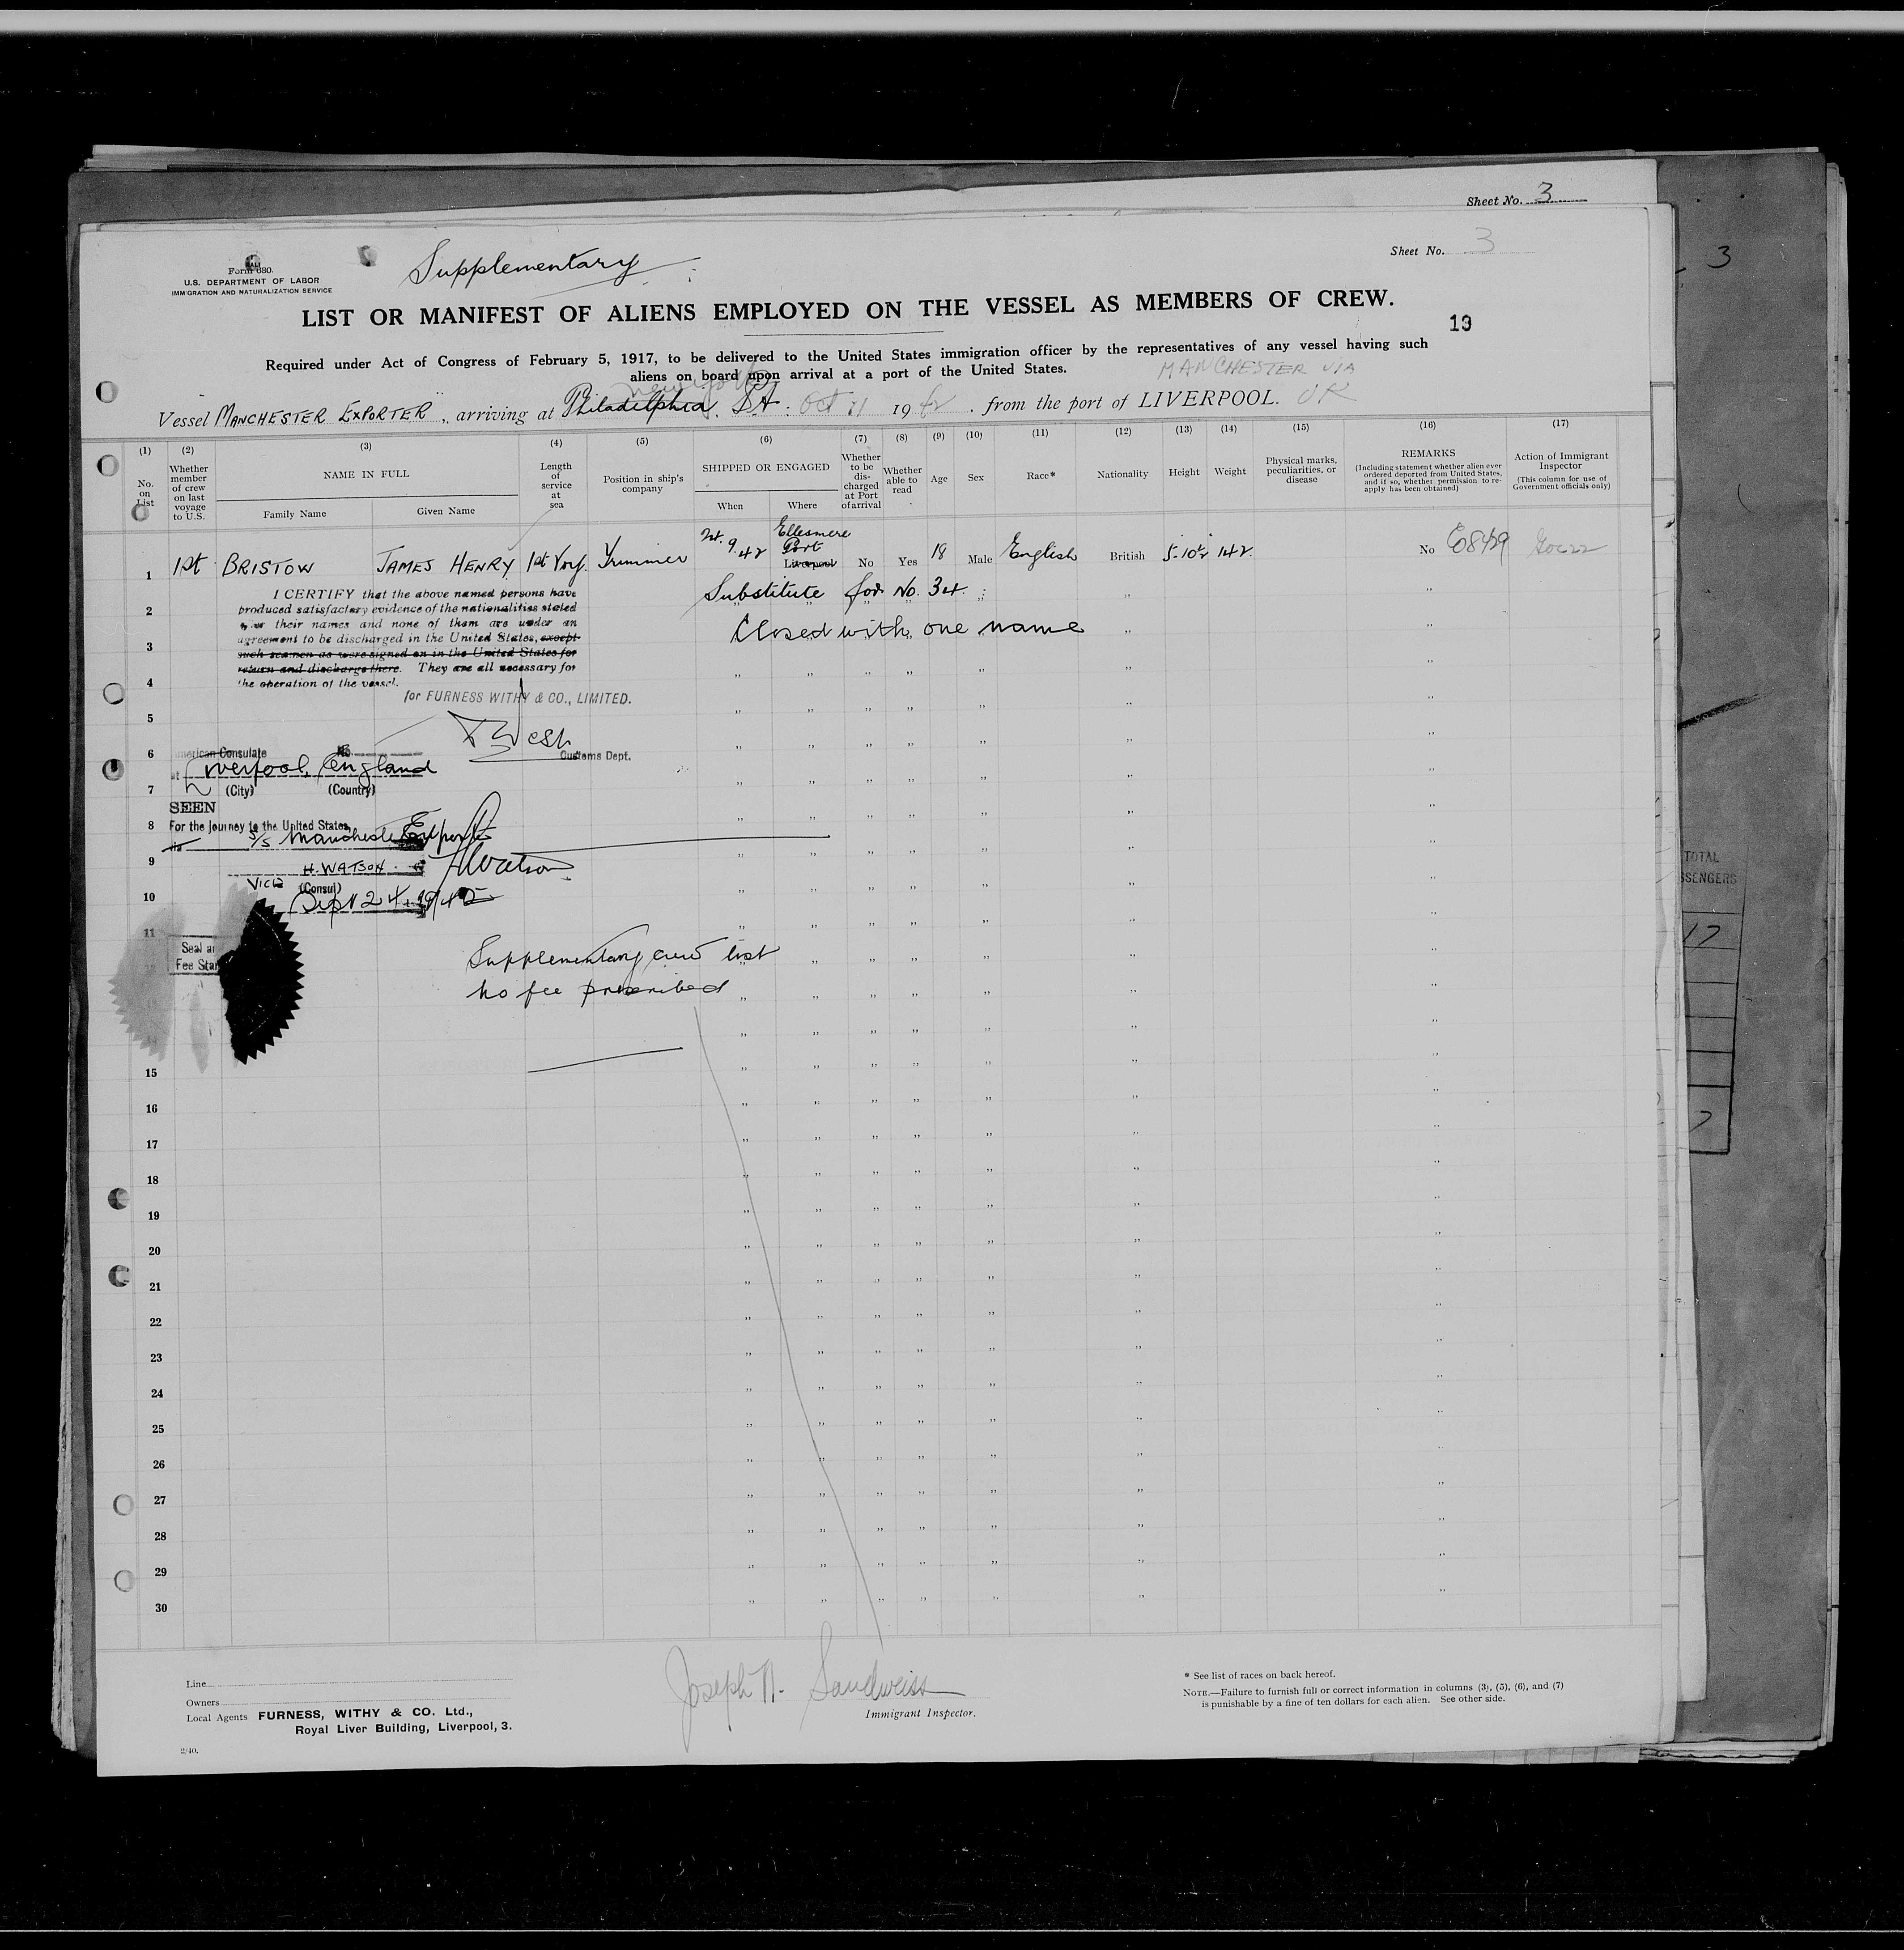 Sheet No. 3
Sheet No. 3
3
Supplementary
Form 680.
U.S. DEPARTMENT OF LABOR
IMMIGRATION AND NATURALIZATION SERVICE
LIST OR MANIFEST OF ALIENS EMPLOYED ON THE VESSEL AS MEMBERS OF CREW.
13
Required under Act of Congress of February 5, 1917, to be delivered to the United States immigration officer by the representatives of any vessel having such
aliens on board upon arrival at a port of the United States.
New York
MANCHESTER VIA
Vessel MANCHESTER EXPORTER, arriving at Philadelphia, Oct 11 1942. from the port of LIVERPOOL. UK
(1) (2) (3) (4) (5) (6) (7) (8) (9) (10) (11) (12) (13) (14) (15) (16) (17)
No. on List
Whether member of crew on last voyage to U.S.
NAME IN FULL
Family Name
Given Name
Length of service at sea
Position in ship's company
SHIPPED OR ENGAGED
When
Where
Whether to be discharged at Port of arrival
Whether able to read
Age
Sex
Race*
Nationality
Height
Weight
Physical marks, peculiarities, or disease
REMARKS
(Including statement whether alien ever ordered deported from United States, and if so, whether permission to re-apply has been obtained)
Action of Immigrant Inspector
(This column for use of Government officials only)
1 1st BRISTOW JAMES HENRY 1st Voy. Trimmer 24.9.42 Ellesmere Port Liverpool No Yes 18 Male English British 5-10½ 142 No E8429
2 Substitute for No. 34.
3 Closed with one name
I CERTIFY that the above named persons have
produced satisfactory evidence of the nationalities stated
their names and none of them are under an
agreement to be discharged in the United States, except
such seamen as were signed on in the United States for
return and discharge there. They are all necessary for
the operation of the vessel.
for FURNESS WITHY & CO., LIMITED.
4
5
Customs Dept.
6
American Consulate No.
at Liverpool, England
7
(City) (Country)
SEEN
8
For the journey to the United States
via S/S Manchester Exporter
9
H. WATSON HWatson
VICE (Consul)
10
Sept 24, 1942
11
Seal an
Fee Sta
Supplementary crew list
No fee prescribed
15
16
17
18
19
20
21
22
23
24
25
26
27
28
29
30
TOTAL
SSENGERS
17
7
Line
Owners
Local Agents FURNESS, WITHY & CO. Ltd.,
Royal Liver Building, Liverpool, 3.
2/40.
Joseph N. Sandweiss
Immigrant Inspector.
* See list of races on back hereof.
NOTE.—Failure to furnish full or correct information in columns (3), (5), (6), and (7)
is punishable by a fine of ten dollars for each alien. See other side.